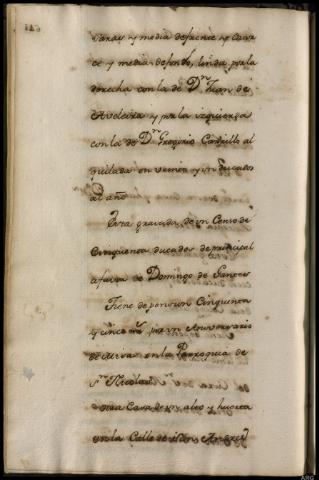 varas y media de frente y cator
ce y media de fondo, linda por la
derecha con la de Dn. Juan de
Aveleira y por la izquierda
con la de Dn. Gregorio Castrillo al
quilada en veinte y un Ducados
al año
Esta gravada de un Censo de
Cinquenta ducados de principal
a favor de Domingo de
Tiene de pension Cinquenta
y cinco rs. por un Aniversario
de Misas en la Parroquia de
Sn. Nicolas
otra Casa de alto y huerta
en la Calle de San Andres